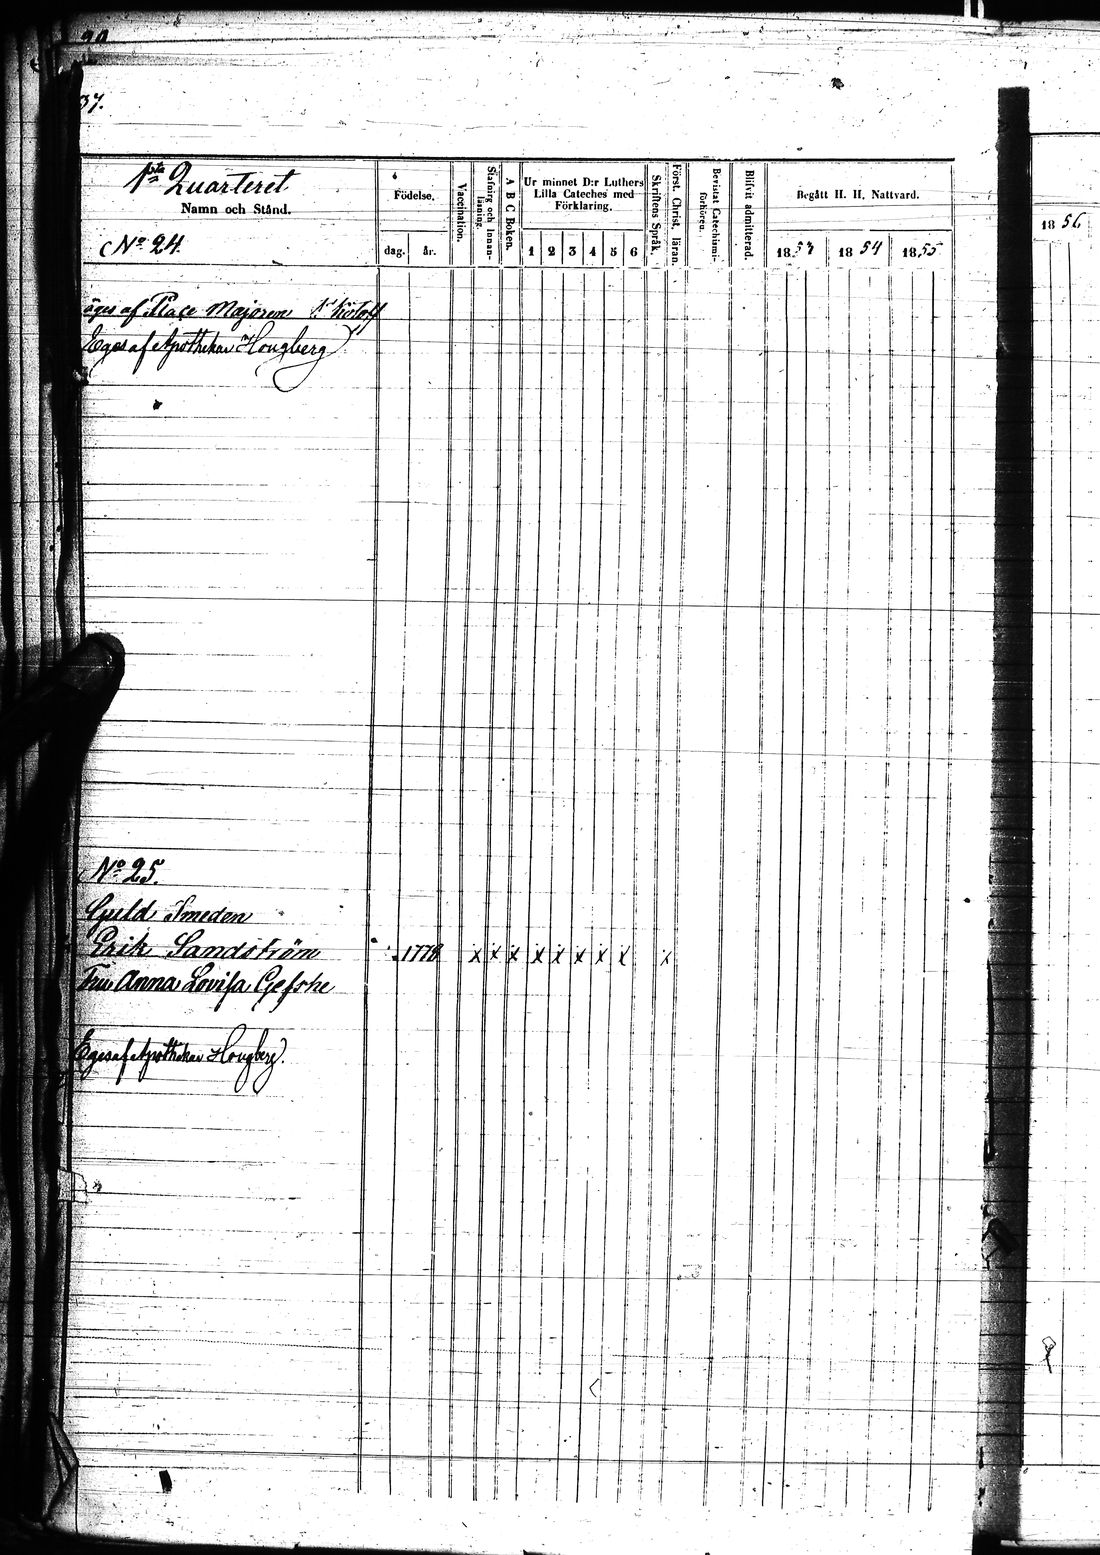 37.
1sta Quarteret
Namn och Stånd.
No 24.
Födelse.
dag. år.
Vaccination.
Stafning och Innanläsning.
A B C Boken.
Ur minnet D:r Luthers
Lilla Cateches med
Förklaring.
1 2 3 4 5 6
Skriftens Språk.
Först. Christ. läran.
Bevistat Catechismiförhören.
Blifvit admitterad.
Begått H. H. Nattvard.
1853 1854 1855
1856
äges af Place Majoren
Eges af Apothekar Hougberg
No 25.
Guld Smeden
Erik Sandström 1778 x x x x x x x x x
Fru Anna Lovisa
Eges af Apothekar Hougberg.